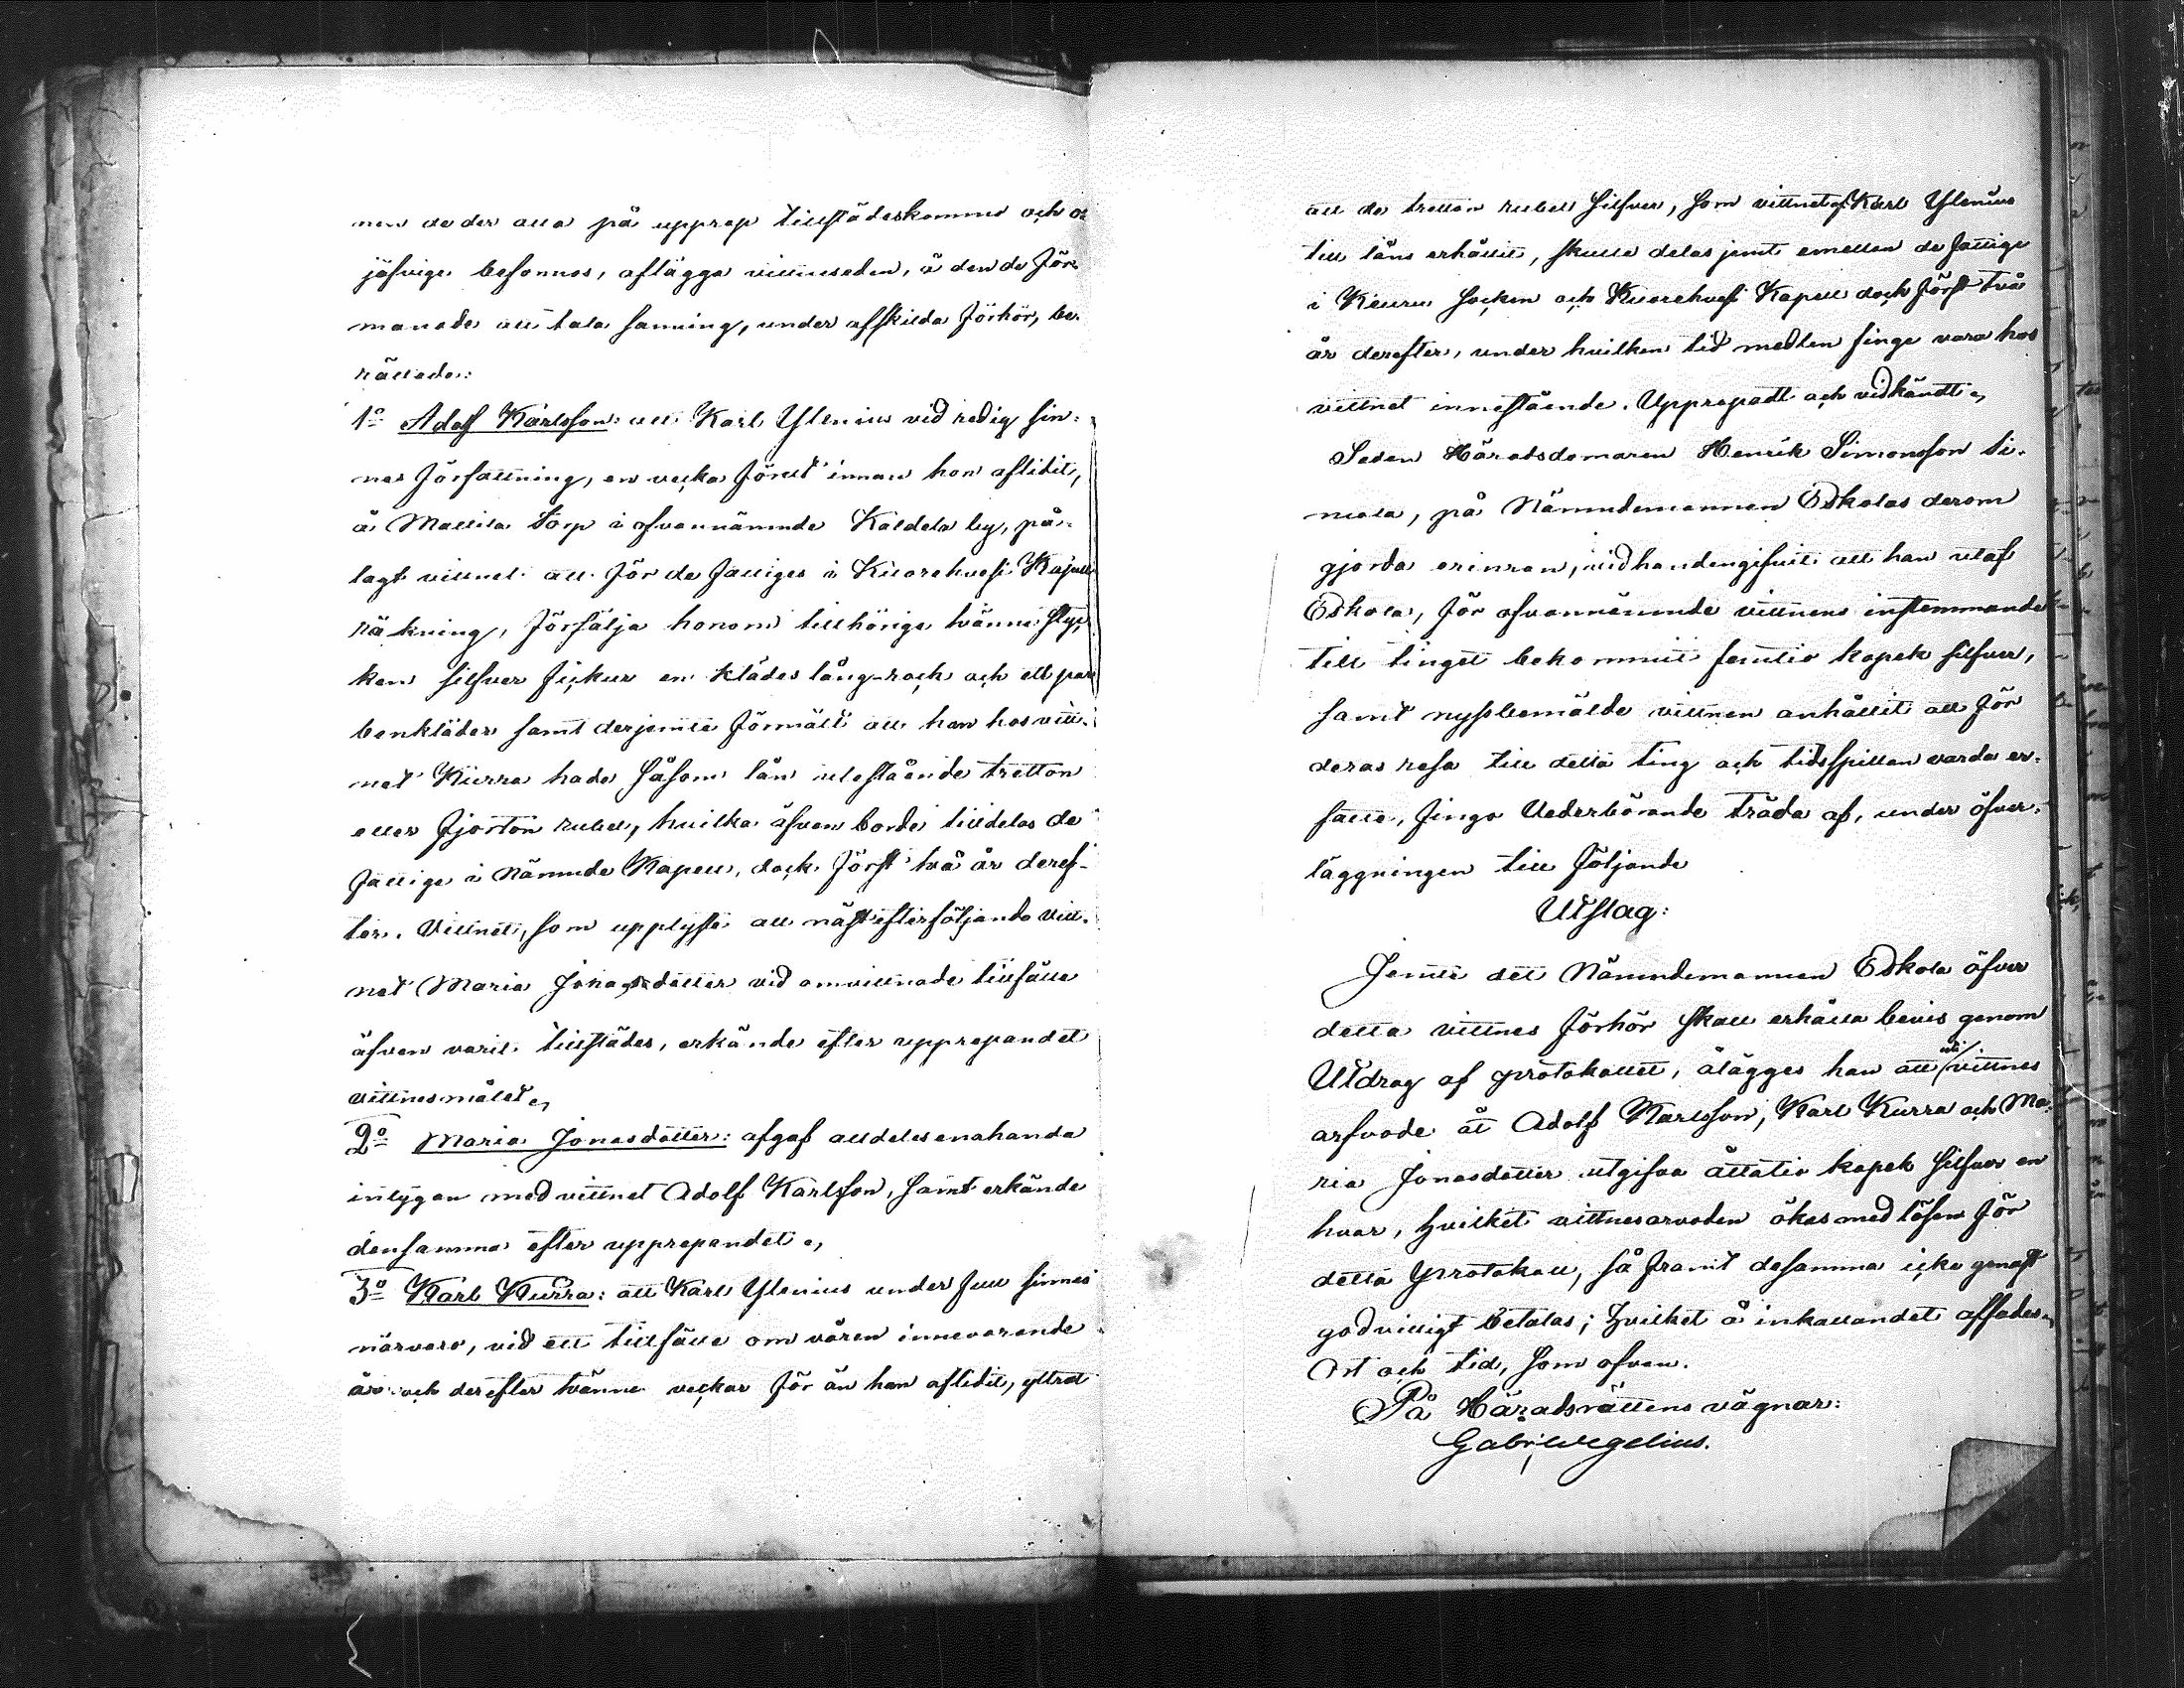 nen de der alla på upprop tillstädeskommo och o
jäfvige befonnos, aflägga vittneseden, å den de för
manade att tala sanning, under afskilda förhör, be-
rättade:
1o Adolf Karlsson: att Karl Ylenius vid redig sin-
nes författning, en vecka förut innan han aflidit,
å Mattila torp i ofvannämnde Kaldela by, på-
lagt vittnet att för de fattiges i Kuorehvesi Kapells
räkning, försälja honom tillhöriga tvänne styc-
ken silfver fickur en klädes lång-rock och ett par
benkläder samt derjemte förmält att han hos vitt-
net Kurra hade såsom lån utestående tretton
eller fjorton rubel, hvilka äfven borde tilldelas de
fattige i nämnde Kapell, dock först två år deref-
ter. Vittnet, som upplyste att näst efterföljande vitt-
net Maria Jonasdotter vid omvittnade tillfälle
äfven varit tillstädes, erkände efter upprepandet
vittnesmålet.
2o Maria Jonasdotter: afgaf alldeles enahanda
intygan med vittnet Adolf Karlsson, samt erkände
densamma efter upprepandet.
3o Karl Kurra: att Karl Ylenius under full sinnes
närvaro, vid ett tillfälle om våren innevarande
år och derefter tvänne veckor för än han aflidit, yttrat
att de tretton rubel silfver, som vittnet af Karl Ylenius
till låns erhållit, skulle delas jemt emellan de fattige
i Keuru Socken och Kuorehvesi Kapell dock först två
år derefter, under hvilken tid medlen finge vara hos
vittnet innestående. Upprepadt och vidkändt.
Sedan Häradsdomaren Henrik Simonsson Si-
mola, på Nämndemannen Eskolas derom
gjorda erinran, vid handen gifvit att han utaf
Eskola, för ofvannämnde vittnens instemmande
till tinget bekommit femtio kopek silfver,
samt nyssbemälde vittnen anhållit att för
deras resa till detta ting och tidsspillan varda er-
satte, fingo Vederbörande träda af, under öfver-
läggningen till följande
Utslag:
Jemte det Nämndemannen Eskola öfver
detta vittnes förhör skall erhålla bevis genom
Utdrag af protokollet, ålägges han att uti vittnes
arfvode åt Adolf Karlsson, Karl Kurra och Ma-
ria Jonasdotter utgifva åttatio kopek silfver en
hvar, hvilket vittnesarvoden ökas med lösen för
detta Protokoll, så framt desamma icke genast
godvilligt betalas; hvilket å inkallandet affades.
Ort och tid, som ofvan.
På Häradsrättens vägnar:
Gabr. Wegelius.